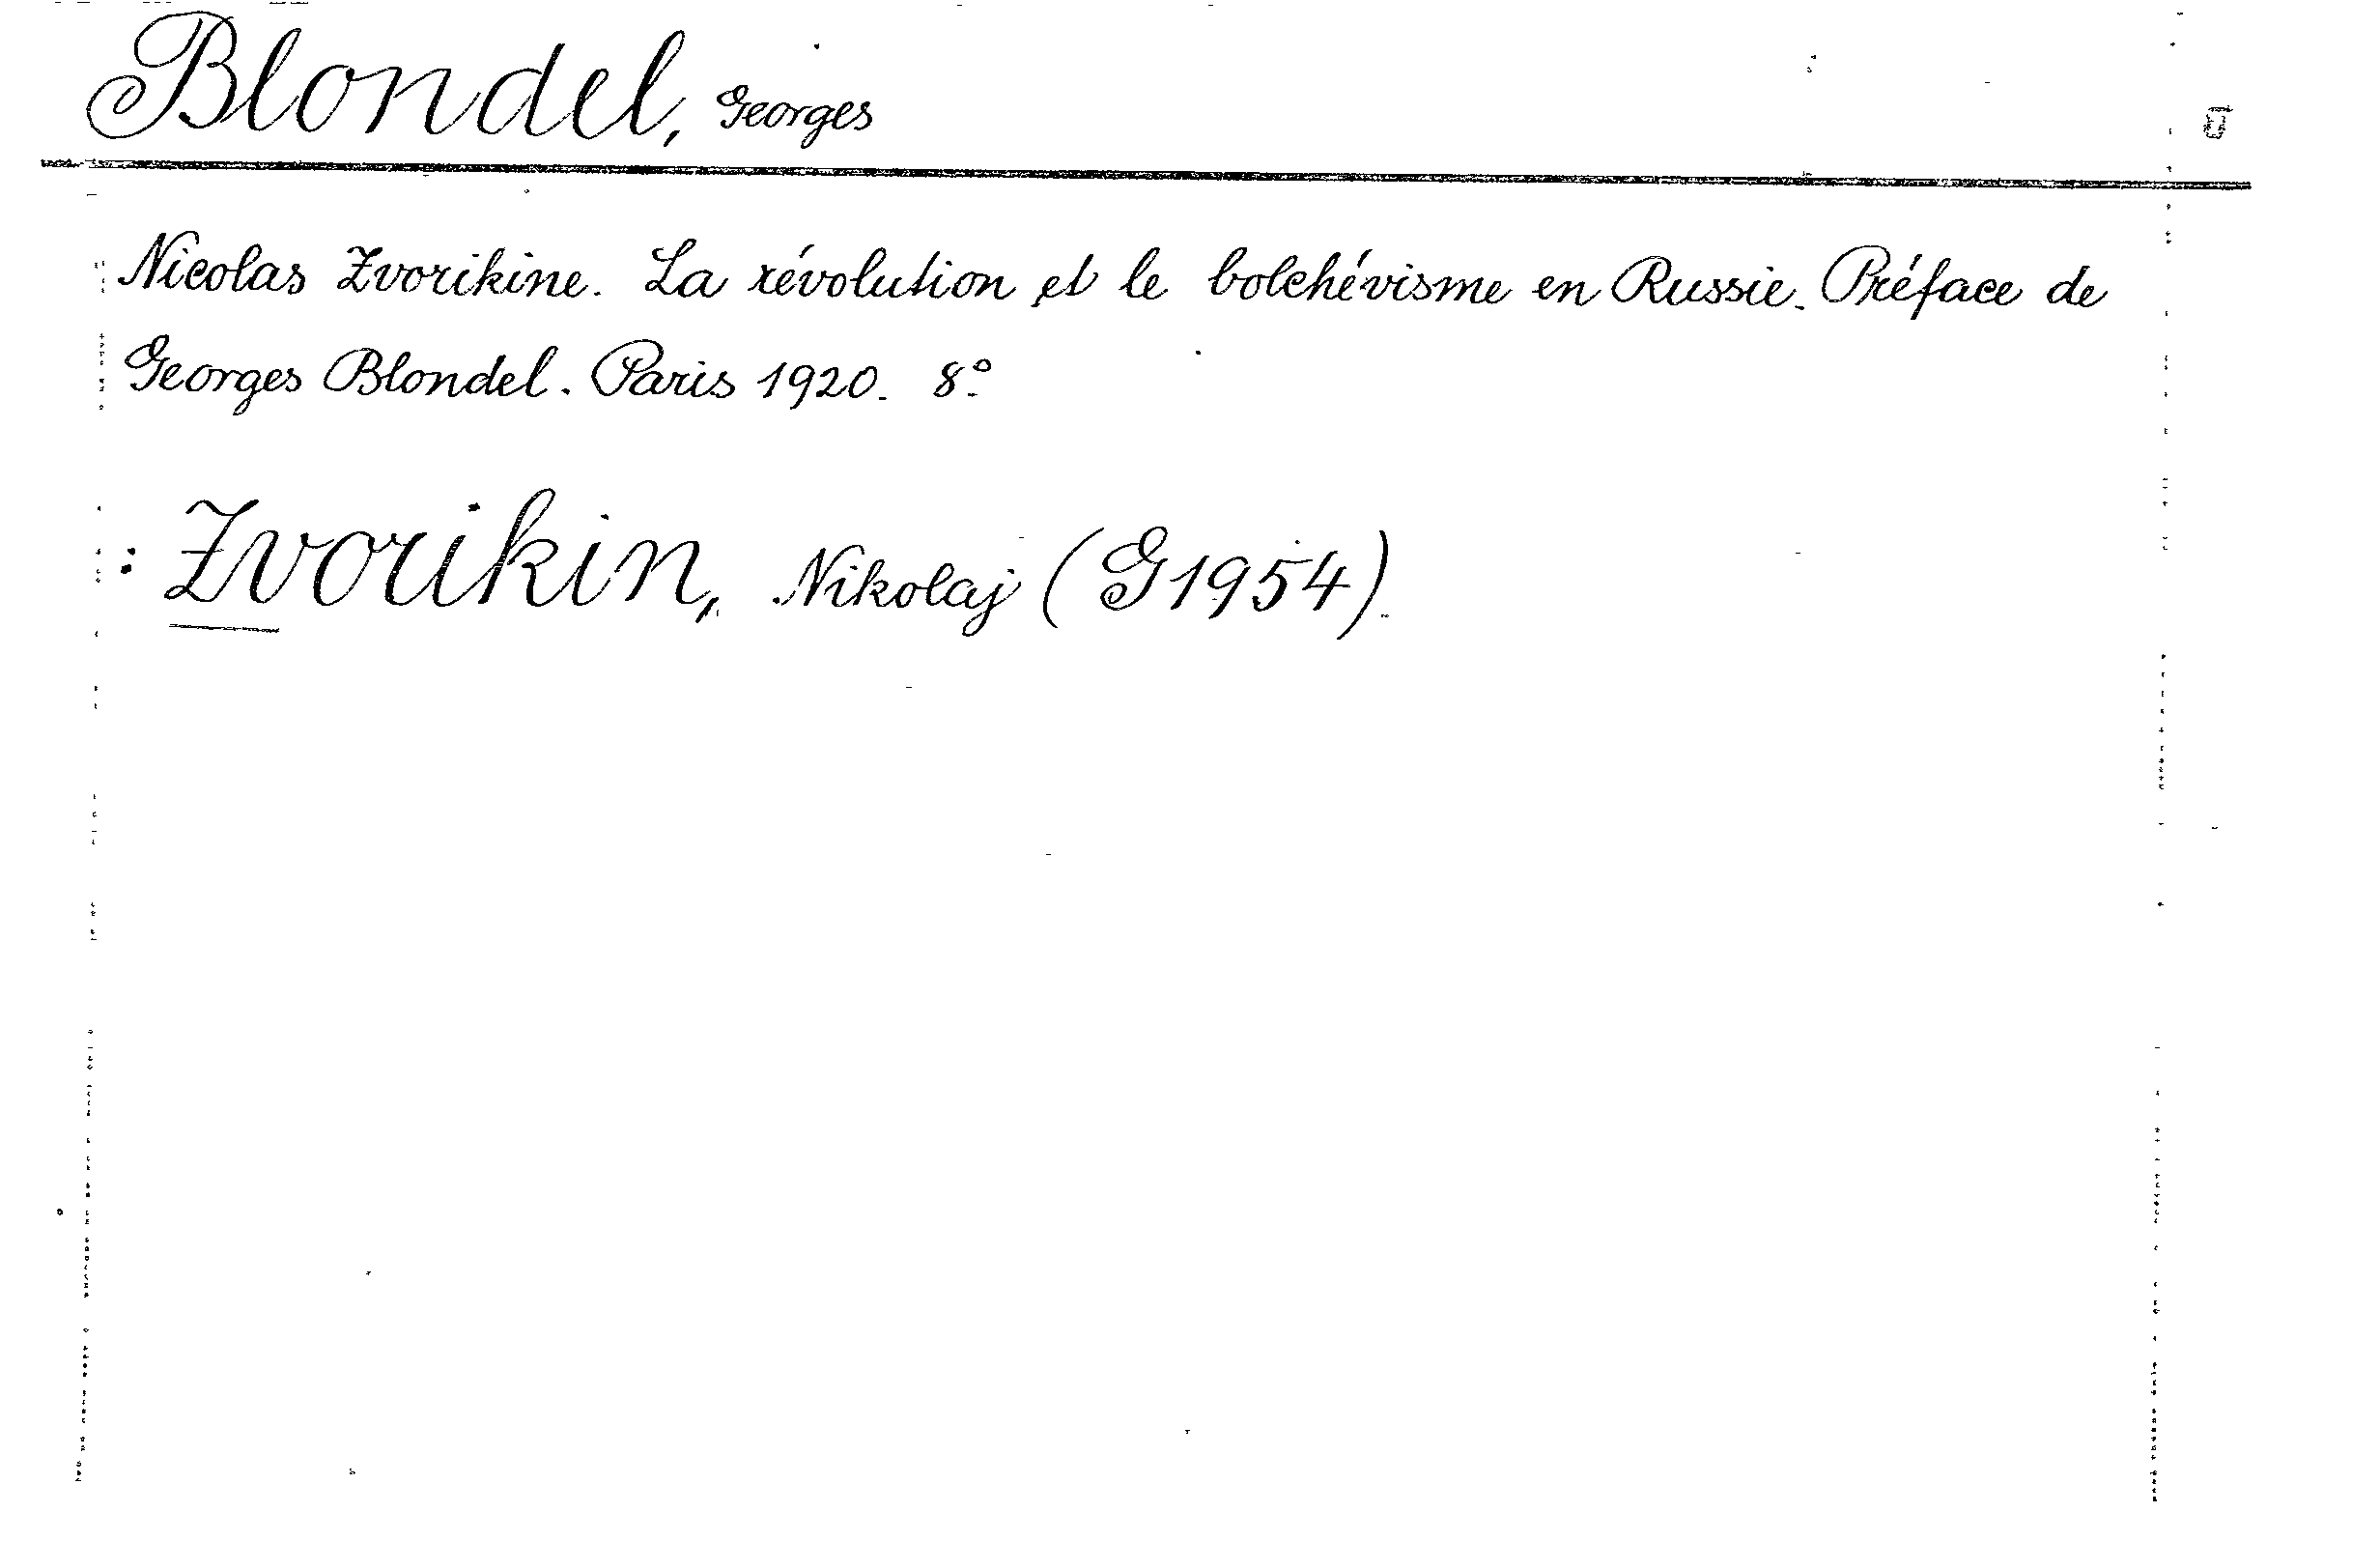 Blondel, Georges
Nicolas Zvorikine. La révolution et le bolchévisme en Russie. Préface de
Georges Blondel. Paris 1920. 8°.
: Zvorikin, Nikolaj (G1954).